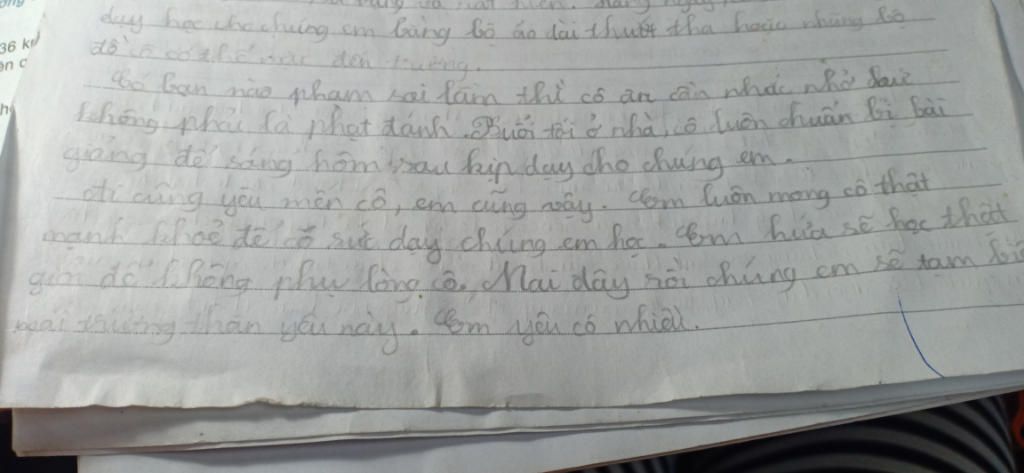 36 km
dạy học cho chúng em bằng bộ áo dài thướt tha hoặc những bộ
đồ cô có thể mặc đến trường.
Có bạn nào phạm sai lầm thì cô ân cần nhắc nhở
không phải là phạt đánh. Buổi tối ở nhà, cô luôn chuẩn bị bài
giảng để sáng hôm sau kịp dạy cho chúng em.
Ai cũng yêu mến cô, em cũng vậy. Em luôn mong cô thật
mạnh khoẻ để có sức dạy chúng em học. Em hứa sẽ học thật
giỏi để không phụ lòng cô. Mai đây rồi chúng em sẽ tạm biệt
mái trường thân yêu này. Em yêu cô nhiều.